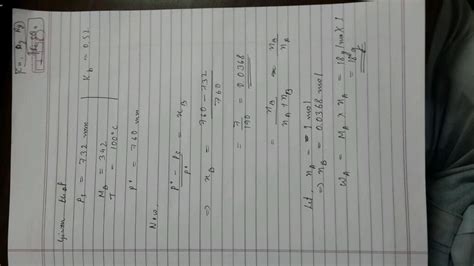 Given that
Ps = 732 mm
MB = 342
T = 100°C
Kb = 0.52
P° = 760 mm
Now,
P° - Ps / P° = xB
⇒ xB = 760 - 732 / 760
= 7 / 190 = 0.0368
= nB / nA + nB ≈ nB / nA
Let, nA = 1 mol
⇒ nB = 0.0368 mol
WA = MA × nA = 18 g/mol × 1
= 18 g